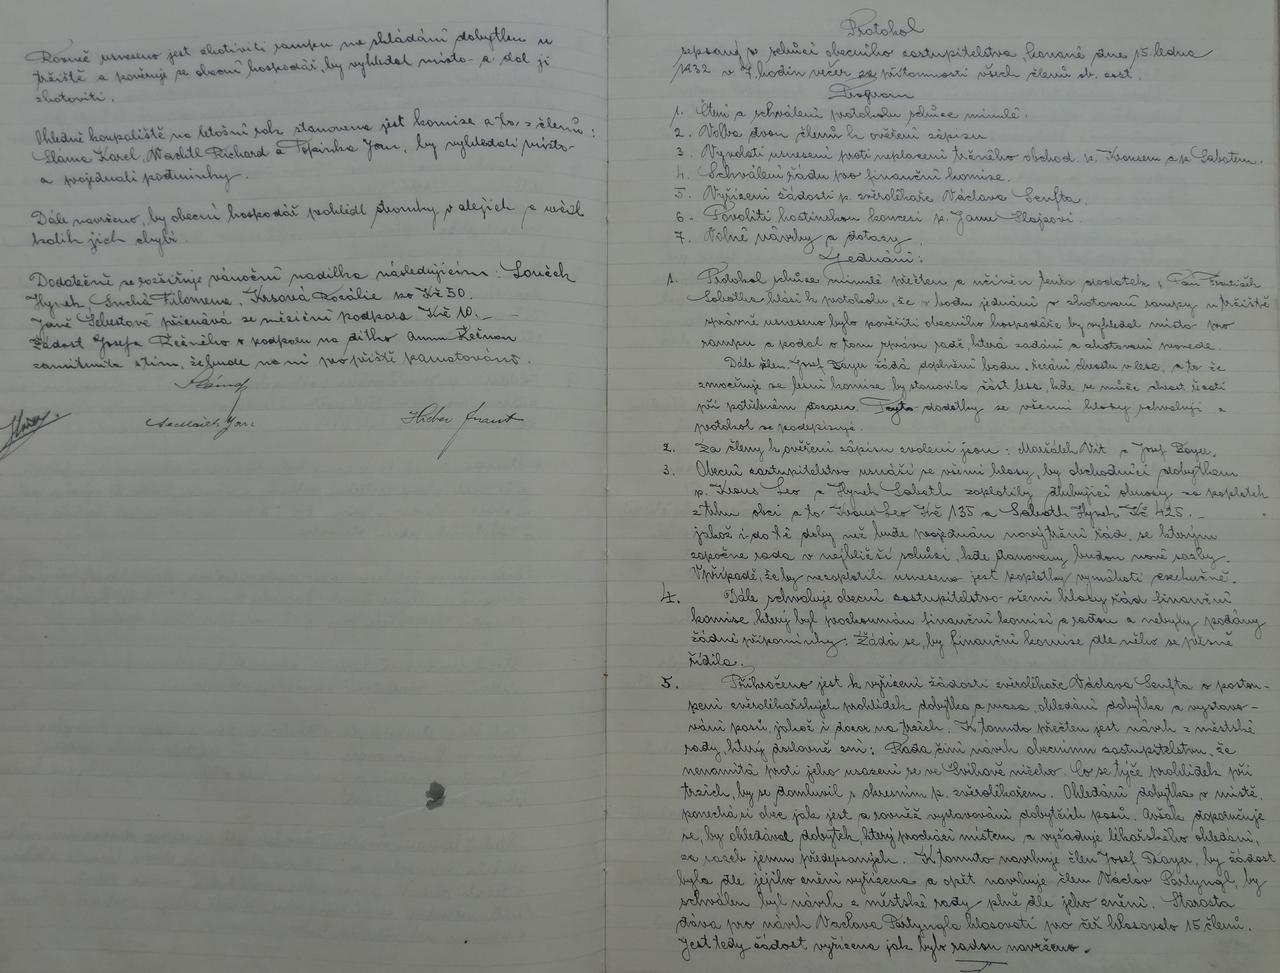 Rovněž usneseno jest zhotoviti rampu na skládání dobytka u
tržiště a pověřuje se obecní hospodář, by vyhledal místo a dal ji
zhotoviti.
Ohledně koupaliště na letošní rok stanovena jest komise a to z členů:
Sláma Karel, Wachtl Richard a Topinka Jan, by vyhledali místo
a projednali podmínky.
Dále navrženo, by obecní hospodář prohlédl stromky v alejích a určil
kolik jich chybí.
Dodatečně se rozšiřuje vánoční nadílka následujícím: Souček
Hynek Suchá Filomena, Krsová Rozálie po Kč 50.
Janě Šebestové přiznává se měsíční podpora Kč 10.-
Žádost Josefa Řežného o podporu na dítko Annu Řežnou
zamítnuta s tím, že bude na ní pro příště pamatováno.
Protokol
sepsaný o schůzi obecního zastupitelstva, konané dne 15. ledna
1932 v 7 hodin večer za přítomnosti všech členů ob. zast.
Program
1. Čtení a schválení protokolu schůze minulé.
2. Volba dvou členů k ověření zápisu.
3. Vyvolati usnesení proti neplacení tržného obchod. p. Krausem a p. Sabatem.
4. Schválení řádu pro finanční komise.
5. Vyřízení žádosti p. zvěrolékaře Václava Senfta.
6. Povoliti hostinskou koncesi p. Janu Slajsovi.
7. Volné návrhy a dotazy.
Jednání:
1. Protokol schůze minulé přečten a učiněn tento dodatek, Pan František
Sabatka hlásí k protokolu, že v bodu jednání o zhotovení rampy u tržiště
správně usneseno bylo pověřiti obecního hospodáře by vyhledal místo pro
rampu a podal o tom zprávu radě, která zadání a zhotovení provede.
Dále člen Josef Bayer žádá doplnění bodu řezání chvostu v lese, a to že
zmocňuje se lesní komise by stanovila část lesa, kde se může chvost řezati
při potřebném dozoru. Tyto dodatky se všemi hlasy schvalují a
protokol se podepisuje.
2. Za členy k ověření zápisu zvoleni jsou: Maršálek Vít a Josef Bayer.
3. Obecní zastupitelstvo usnáší se všemi hlasy, by obchodníci dobytkem
p. Kraus Leo a Hynek Sabath zaplatily dlubující obnosy za poplatek
z trhu obci a to Kraus Leo Kč 135 a Sabath Hynek Kč 425.-
jakož i do té doby než bude projednán nový tržní řád, se kterým
započne rada v nejbližší schůzi, kde stanoveny budou nové sazby.
V případě, že by nezaplatili usneseno jest poplatky vymáhati exekučně.
4. Dále schvaluje obecní zastupitelstvo všemi hlasy řád finanční
komise, který byl prozkoumán finanční komisí a radou a nebyly podány
žádné připomínky. Žádá se, by finanční komise dle něho se přesně
řídila.
5. Přikročeno jest k vyřízení žádosti zvěrolékaře Václava Senfta o postou-
pení zvěrolékařských prohlídek dobytka a masa, ohledání dobytka a vystavo-
vání pasů, jakož i dozor na trzích. K tomuto přečten jest návrh z městské
rady, který doslovně zní: Rada činí návrh obecnímu zastupitelstvu, že
nenamítá proti jeho usazení se ve Švihově ničeho. Co se týče prohlídek při
trzích, by se domluvil s okresním p. zvěrolékařem. Ohledání dobytka v místě
ponechá si obec jak jest a rovněž vystavování dobytčích pasů. Avšak doporučuje
se, by ohledával dobytek, který prochází místem a vyžaduje lékařského ohledání,
za sazeb jemu předepsaných. K tomuto navrhuje člen Josef Bayer, by žádost
byla dle jejího znění vyřízena a opět navrhuje člen Václav Partyngl, by
schválen byl návrh z městské rady plně dle jeho znění. Starosta
dává pro návrh Václava Partyngla hlasovati pro čež hlasovalo 15 členů.
Jest tedy žádost vyřízena jak bylo radou navrženo.